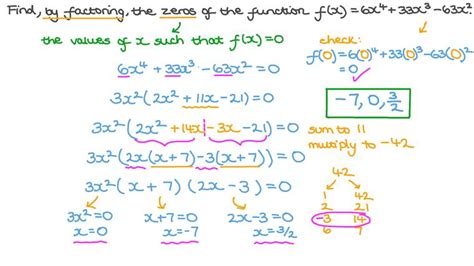 Find, by factoring, the zeros of the function f(x) = 6x⁴ + 33x³ - 63x²
the values of x such that f(x) = 0
6x⁴ + 33x³ - 63x² = 0
3x²(2x² + 11x - 21) = 0
3x²(2x² + 14x - 3x - 21) = 0
3x²(2x(x + 7) - 3(x + 7)) = 0
3x²(x + 7)(2x - 3) = 0
3x² = 0 x + 7 = 0 2x - 3 = 0
x = 0 x = -7 x = 3/2
check:
f(0) = 6(0)⁴ + 33(0)³ - 63(0)²
= 0 ✓
-7, 0, 3/2
sum to 11
multiply to -42
42
1 42
2 21
-3 14
6 7